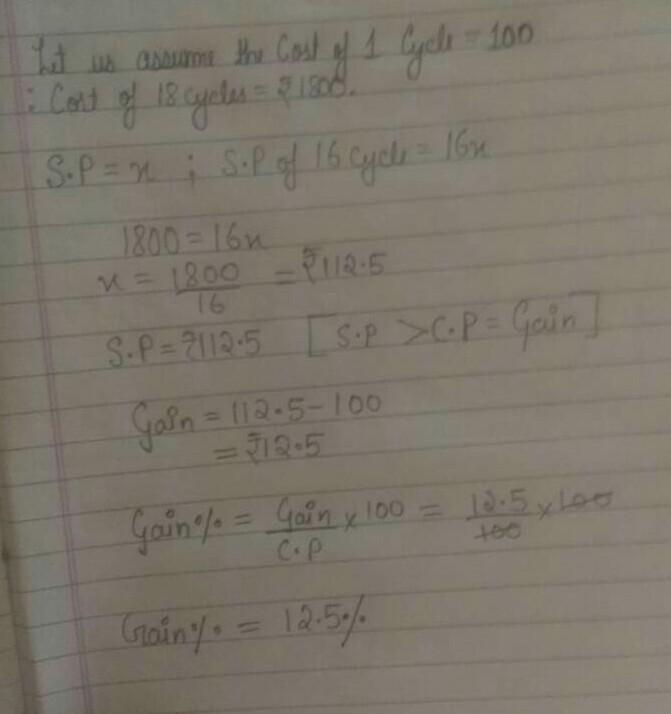 Let us assume the Cost of 1 Cycle = 100
: Cost of 18 cycles = ₹1800.
S.P = x ; S.P of 16 Cycle = 16x
1800 = 16x
x = 1800/16 = ₹112.5
S.P = ₹112.5 [S.P > C.P = Gain]
Gain = 112.5 - 100
= ₹12.5
Gain% = Gain/C.P × 100 = 12.5/100 × 100
Gain% = 12.5%